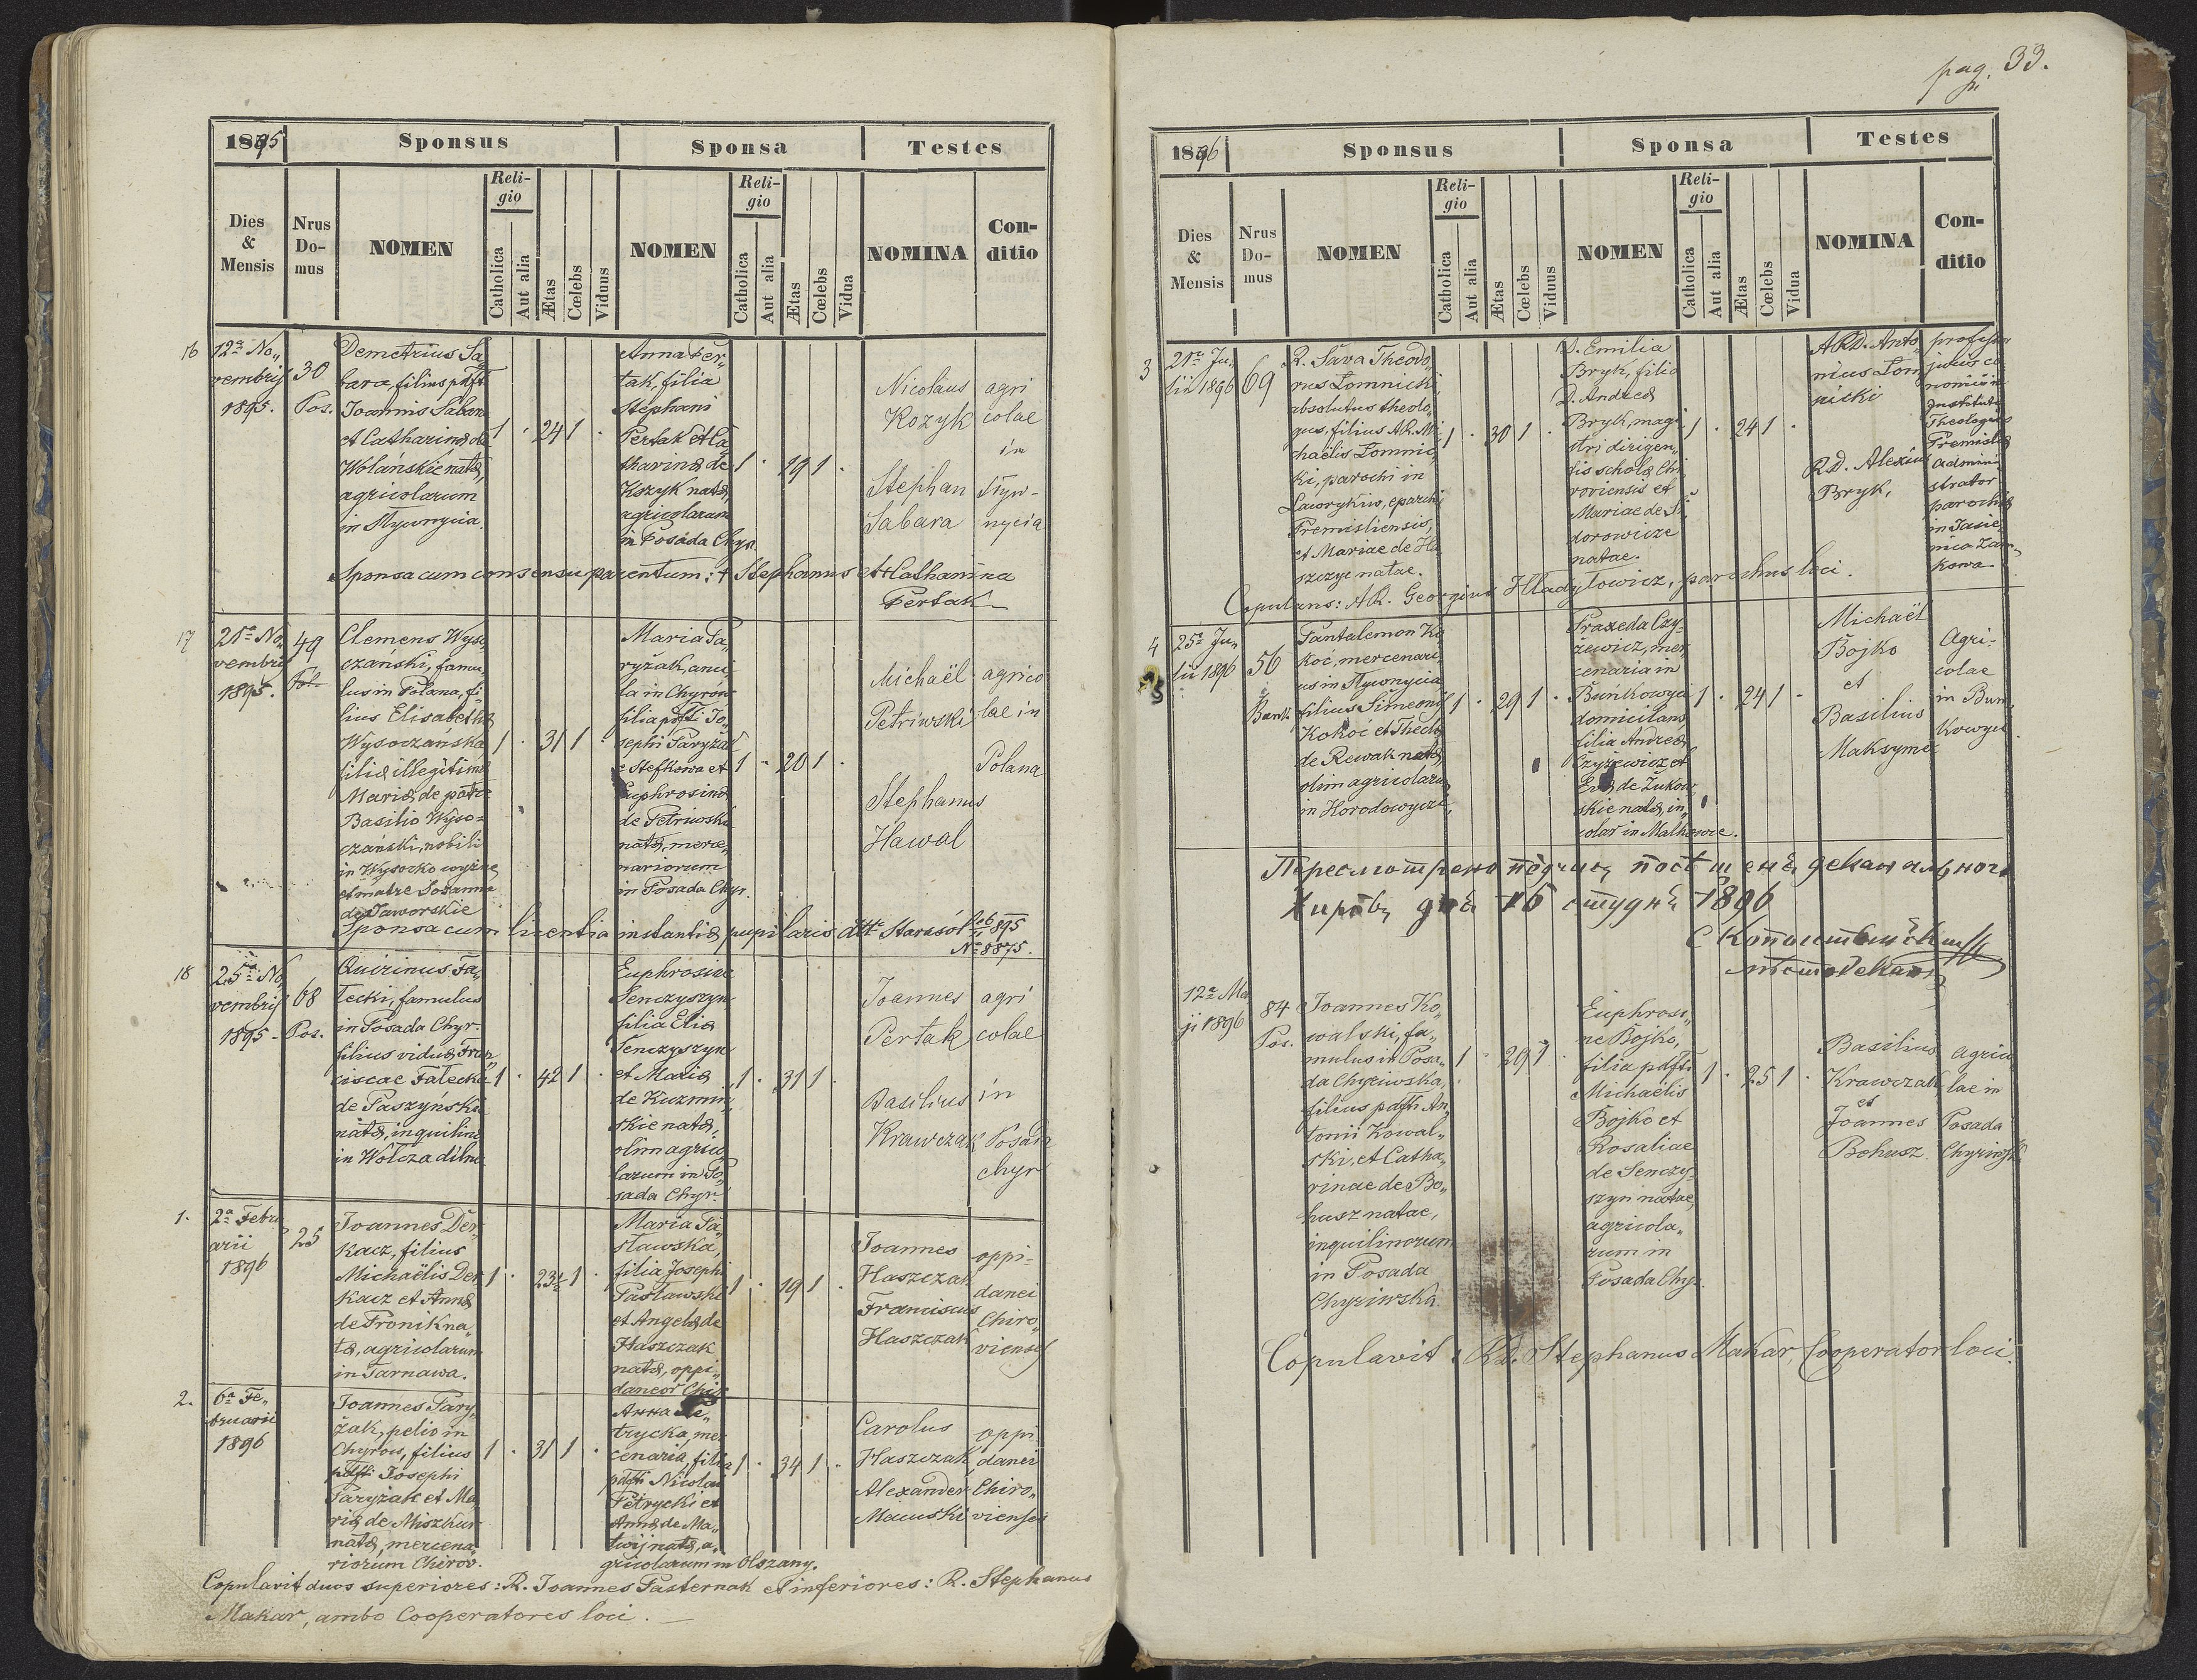 1895
Sponsus
Sponsa
Testes
Dies & Mensis
Nrus Do-mus
NOMEN
Reli-gio
Catholica
Aut alia
Ætas
Cœlebs
Viduus
NOMEN
Reli-gio
Catholica
Aut alia
Ætas
Cœlebs
Vidua
NOMINA
Con-ditio
16
12a No„
vembris
1895.
30
Pos.
Demetrius Sa„
bara, filius pdfti
Joannis Sabara
et Catharinæ de
Wolańskie natæ,
agricolarum
in Slywnycia.
1 · 24 1 ·
Anna Per„
tak, filia
Stephani
Pertak et Ca„
tharinæ de
Kozyk natæ,
agricolarum
in Posada Chyr.
1 · 19 1 ·
Nicolaus
Kozyk
Stephan
Sabara
agri
colae
in
Slyw-
nycia
Sponsa cum consensu parentum: + Stephanus et + Catharina
Pertak
17
21a No„
vembris
1895.
49
Pol.
Clemens Wyso„
czański, famu„
lus in Polana, fi„
lius Elisabethæ
Wysoczańska,
filiæ illegitimæ
Mariæ, de patre
Basilio Wyso=
czański, nobili
in Wysocko wyżne
et matre Sozanna
de Jaworskie
1 · 31 1 ·
Maria Pa„
ryżak, ancil
la in Chyrów
filia pdfti Jo„
sephi Paryżak
e Stefkowa et
Euphrosinæ
de Petriwski
natæ, merce„
nariorum
in Posada Chyr.
1 · 20 1 ·
Michaël
Petriwski
Stephanus
Hawal
agrico
lae in
Polana
Sponsa cum licentia instantiæ pupilaris dtto Starasól 895
No 8875.
18
25a No„
vembris
1895 -
68
Pos.
Quirinus Fa„
lecki, famulus
in Posada Chyr.
filius viduæ Fran„
ciscae Falecka
de Paszyńska
natæ, inquilinæ
in Wolcza dilna
1 · 42 1 ·
Euphrosine
Senczyszyn
filia Eliæ
Senczyszyn
et Mariæ
de Kuzmin„
skie natæ,
olim agrico„
larum in Po„
sada Chyr.
1 · 31 1 ·
Joannes
Pertak
Basilius
Krawczak
agri
colae
in
Posada
Chyr
1.
2a Febru
arii
1896
25
Joannes Der„
kacz, filius
Michaëlis Der„
kacz et Annæ
de Fronik na„
tæ, agricolarum
in Tarnawa.
1 · 23½ 1 ·
Maria Pa„
sławska,
filia Josephi
Pasławski
et Angelæ de
Haszczak
natæ, oppi„
daneor Chir.
1 · 19 1 ·
Joannes
Haszczak
Franciscus
Haszczak
oppi-
danei
Chiro„
vienses
2.
6a Fe„
bruarii
1896
Joannes Pary„
żak, pelio in
Chyrow, filius
pdfti Josephi
Paryżak et Ma„
riæ de Miszkur
natæ, mercena„
riorum Chirov.
1 · 31 1 ·
Anna Pe„
trycka, mer
cenaria, filia
pdfti Nicolai
Petrycki et
Annæ de Ma„
twij natæ, a„
gricolarum in Olszany.
1 · 34 1 ·
Carolus
Haszczak
Alexander
Macuski
oppi„
danei
Chiro„
vienses
Copulavit duos superiores: R. Joannes Pasternak et inferiores: R. Stephanus
Makar, ambo Cooperatores loci.
pag. 33.
1896
Sponsus
Sponsa
Testes
Dies & Mensis
Nrus Do-mus
NOMEN
Reli-gio
Catholica
Aut alia
Ætas
Cœlebs
Viduus
NOMEN
Reli-gio
Catholica
Aut alia
Ætas
Cœlebs
Vidua
NOMINA
Con-ditio
3
21a Ju„
lii 1896
69
R. Sava Theodo„
rus Łomnicki,
absolutus theolo„
gus, filius AR. Mi„
chaëlis Łomnic„
ki, parochi in
Ławrykiw, eparch.
Premisliensis,
et Mariae de Ha„
szczyc natae.
1 · 30 1 ·
D. Emilia
Bryk, filia
D. Andreæ
Bryk, magi„
stri dirigen„
tis scholæ Chi„
roviensis et
Mariae de Si„
dorowicze
natae.
1 · 24 1 ·
ARD. Anto„
nius Łom„
nicki
RD. Alexius
Bryk,
professor
Instituti
Theologici
Premisliæ
admini
strator
parochiæ
in Jasie„
nica Zam„
kowa
Copulans: AR. Georgius Hładyłowicz, parochus loci.
4
5
25a Ju„
lii 1896
56
Bunk.
Pantalemon Ko„
koć, mercenari„
us in Slywnycia
filius Simeonis
Kokoć et Theclæ
de Rewak natæ,
olim agricolarum
in Horodowycze,
1 · 29 1 ·
Praxeda Czy„
żewicz, mer„
cenaria in
Bunkowyci
domicilans
filia Andreæ
Czyżewicz et
Evæ de Żukow„
skie natæ, in„
colar in Malhowice.
1 · 24 1 ·
Michaël
Bojko
et
Basilius
Maksymec
Agri-
colae
in Bun„
kowyci.
Хировъ дня 16 студня 1896
12a Ma
ji 1896
84
Pos.
Joannes Ko„
walski, fa„
mulus in Posa„
da Chyriwska,
filius pdfti An„
tonii Kowal„
ski, et Catha„
rinae de Bo„
husz natae,
inquilinorum
in Posada
Chyriwska
1 · 29 1 ·
Euphrosi„
ne Bojko,
filia pdfti
Michaëlis
Bojko et
Rosaliae
de Senczy-
szyn natae,
agricola„
rum in
Posada Chyr.
1 · 25 1 ·
Basilius
Krawczak
et
Joannes
Bohusz
agrico
lae in
Posada
Chyriwsk.
Copulavit: RD. Stephanus Makar, Cooperator loci.